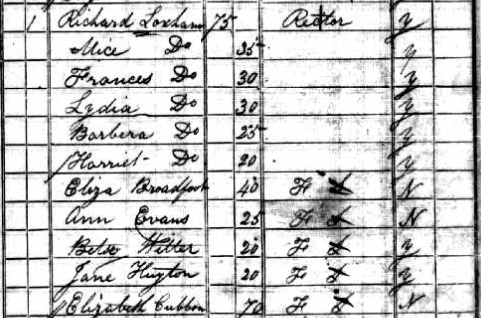 1 Richard Loxham 75 Rector y
Alice Do 35 y
Frances Do 30 y
Lydia Do 30 y
Barbera Do 25 y
Harriet Do 20 y
Eliza Broadfoot 40 F N
Ann Evans 25 F N
Betsy Witter 20 F y
Jane Huyton 20 F y
Elizabeth Cubbon 70 F N